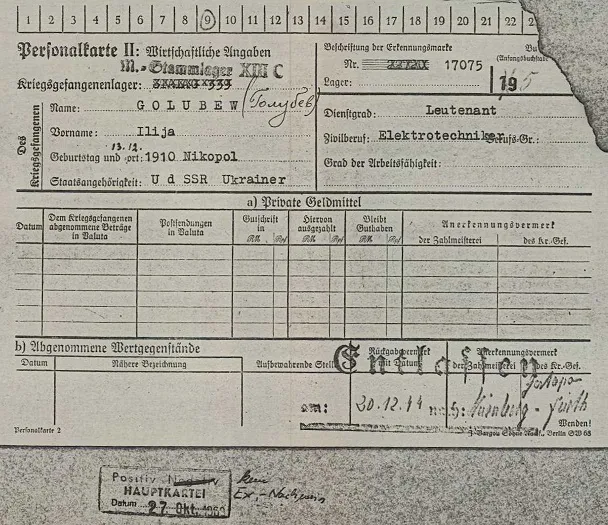 1 2 3 4 5 6 7 8 9 10 11 12 13 14 15 16 17 18 19 20 21 22
Personalkarte II: Wirtschaftliche Angaben
M.-Stammlager XIII C
Kriegsgefangenenlager:
Des Kriegsgefangenen
Name: GOLUBEW (Голубев)
Vorname: Ilija
13.12.
Geburtstag und -ort: 1910 Nikopol
Staatsangehörigkeit: U d SSR Ukrainer
Beschriftung der Erkennungsmarke
Nr. 17075
Lager:
(Anfangsbuchstabe
Dienstgrad: Leutenant
Zivilberuf: Elektrotechniker Berufs-Gr.:
Grad der Arbeitsfähigkeit:
a) Private Geldmittel
Datum
Dem Kriegsgefangenen abgenommene Beträge in Valuta
Postsendungen in Valuta
Gutschrift in
RM. Rpf
Hiervon ausgezahlt
RM. Rpf
Bleibt Guthaben
RM. Rpf
Anerkennungsvermerk
der Zahlmeisterei des Kr.-Gef.
b) Abgenommene Wertgegenstände
Datum Nähere Bezeichnung Aufbewahrende Stelle
Rückgabevermerk mit Datum
Anerkennungsvermerk
der Zahlmeisterei des Kr.-Gef.
Entlassen
am: 20.12.44 nach: Nürnberg - Fürth
Wenden!
Personalkarte 2
Berlin SW 68
Positiv
HAUPTKARTEI
Datum 27. Okt.